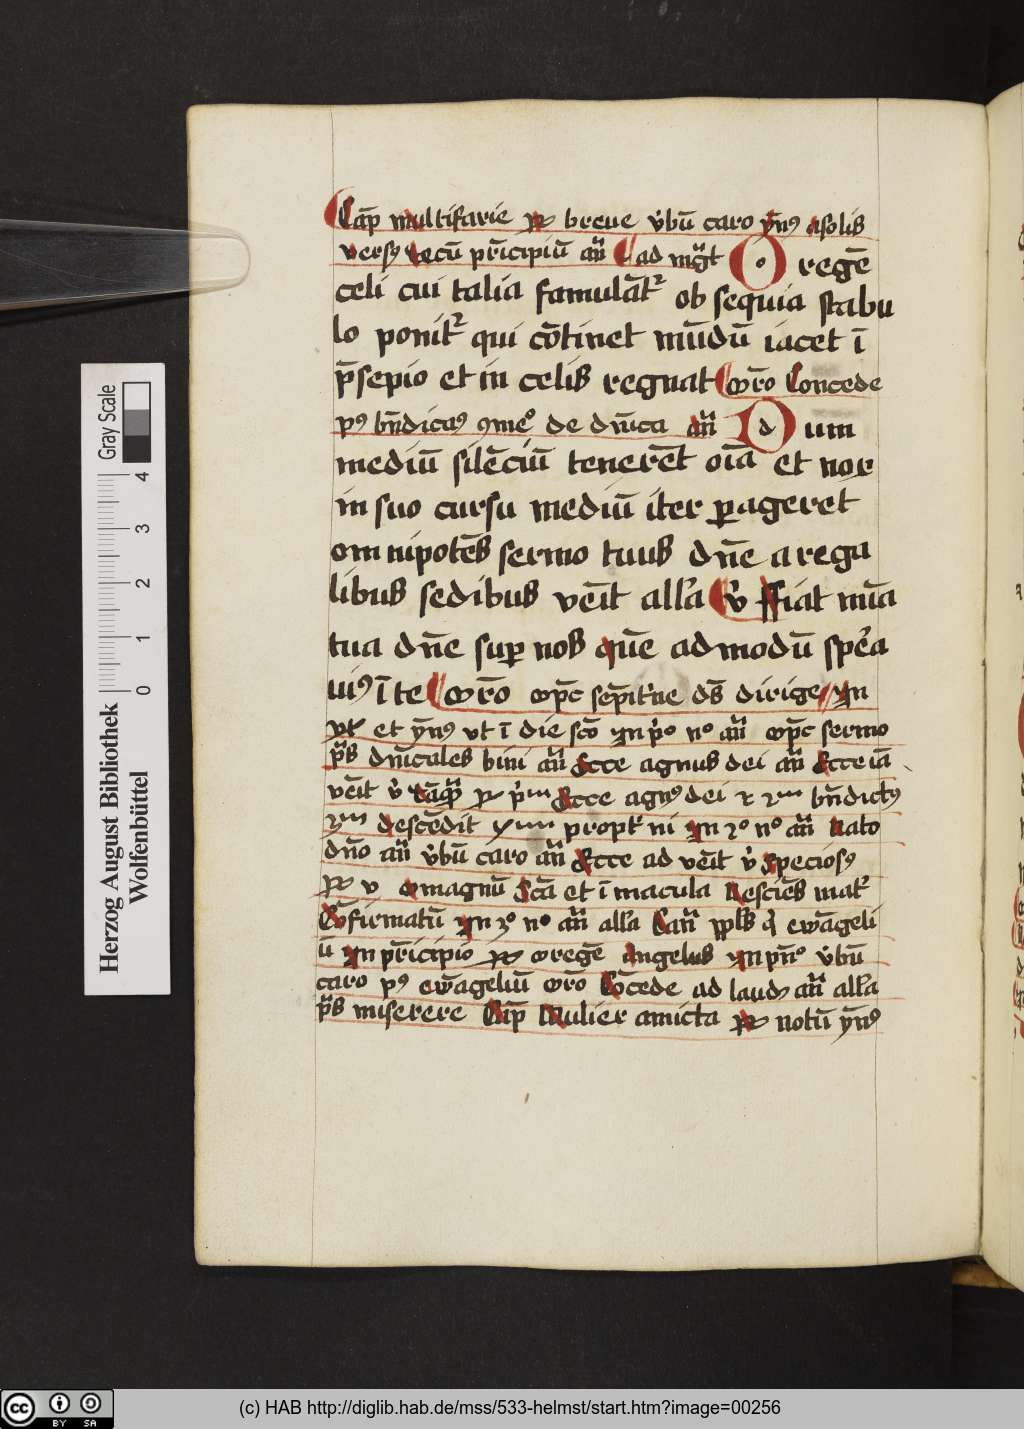 Cap̄ multifarie ꝶ breue v̓bū caro ẏn̄ꝰ asolis
versꝰ tecū pr̄icipiū an̄ ad mgt O regē
celi cui talia famulāt᷑ ob sequia stabu
lo ponit᷑ qui cōtinet mūdū iacet ī
p̄sepio et in celis regnat or̄o Concede
pꝰ bn̄dicaꝰ ꝯmeº de dn̄ica an̄ Dum
mediū silēciū tenerēt oīa et nox
in suo cursu mediū iter ꝑageret
omnipotēs sermo tuus dn̄e a rega
libus sedibus vēit all'a v̓ ffiat mīa
tua dn̄e suꝑ nos quē ad modū spe᷑a
uiꝰ ī te or̄o op̄c sēpit'ne ds̄ dirige yn
vt᷑ et ẏn̄ꝰ vt ī die scō yn pº nº an̄ op̄c sermo
p̄s dn̄icales bini an̄ Ecce agnus dei an̄ Ecce iā
vēit v̓ tāꝙ ꝶ pᵐ Ecce agnꝰ dei 2 2ᵐ bn̄dictꝰ
descēdit propt' ni yn 2º nº an̄ Nato
dn̄o an̄ v̓bū caro an̄ Ecce ad vēit v̓ Speciosꝰ
ꝶ v O magnū Scā et ī macula Nesciēs mat'
Cōfirmatū yn 3º nº an̄ all'a Can̄ ppl's qͥ ewāgeli
ū yn pr̄icipio ꝶ O regē Angelus yn pn̄º v̓bū
caro pꝰ ewāgeliū or̄o Cōcede ad laudꝭ an̄ all'a
p̄s miserere Cap̄ Mulier amicta ꝶ notū ẏn̄ꝰ
Herzog August Bibliothek
Wolfenbüttel
Gray Scale
0 1 2 3 4
cc BY SA
(c) HAB http://diglib.hab.de/mss/533-helmst/start.htm?image=00256